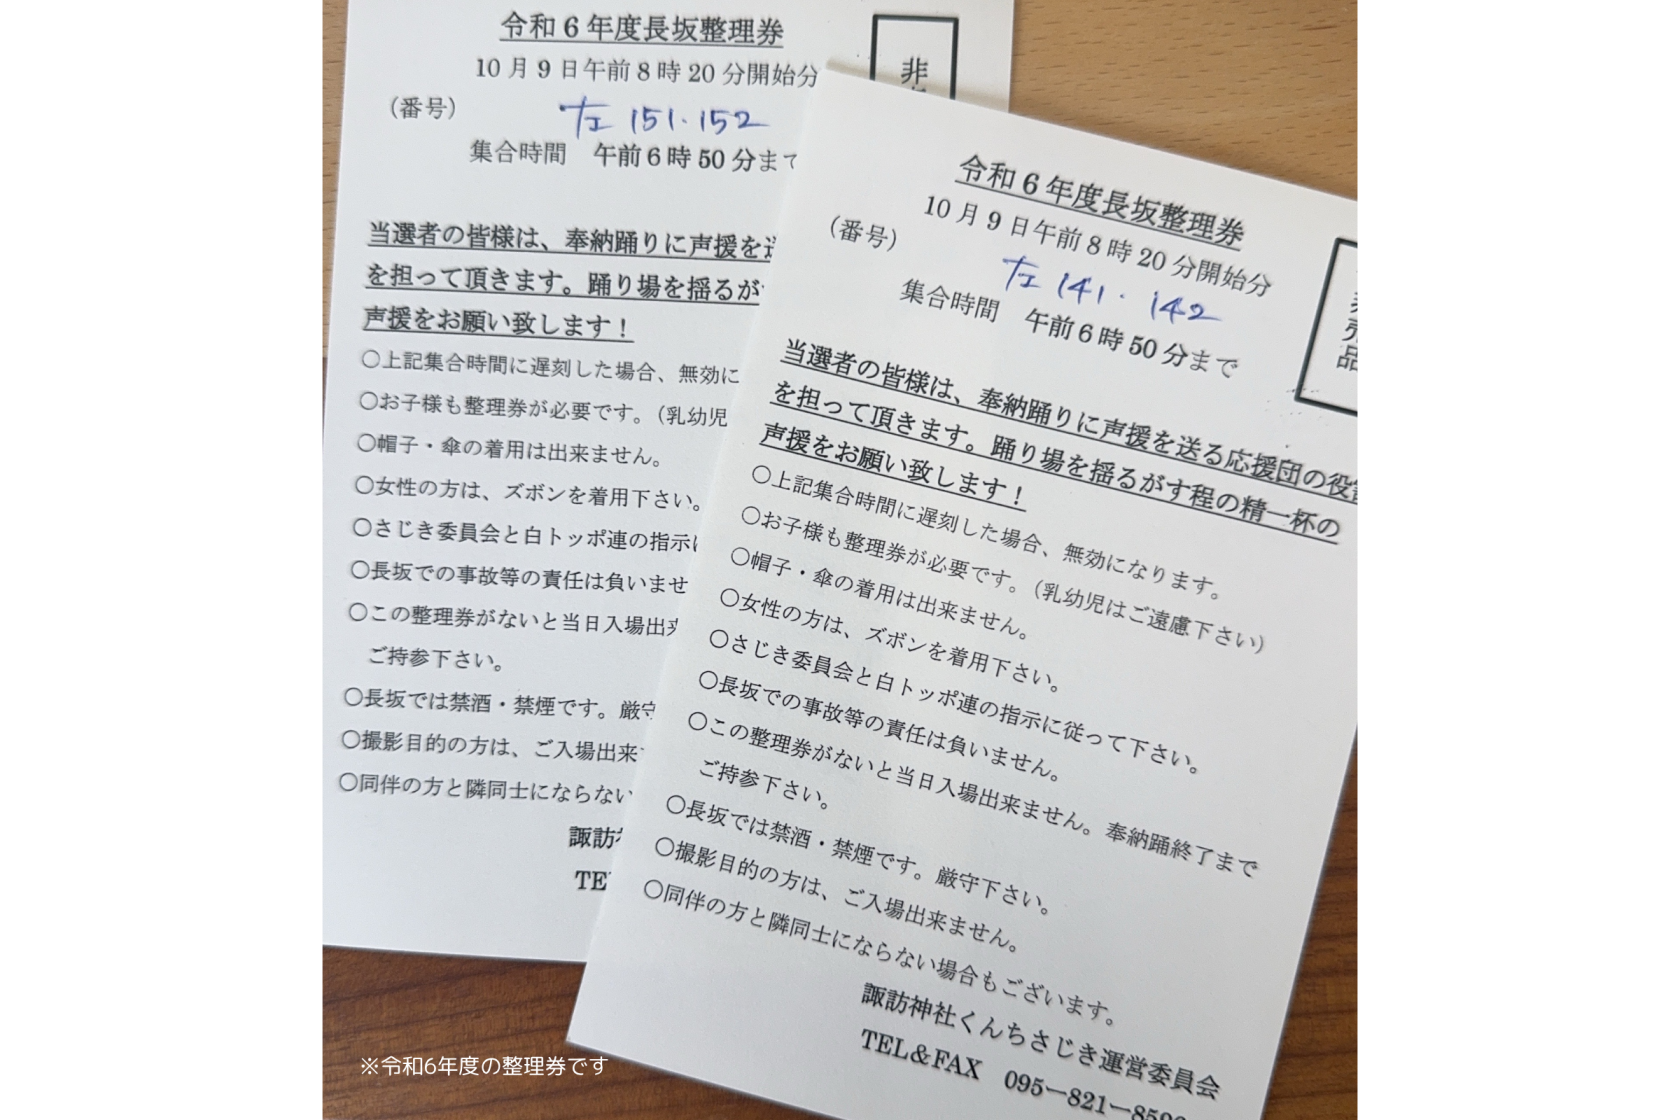 令和6年度長坂整理券
10月9日午前8時20分開始分
(番号)
左 151・152
集合時間 午前6時50分まで
非
当選者の皆様は、奉納踊りに声援を送
を担って頂きます。踊り場を揺るが
声援をお願い致します！
○上記集合時間に遅刻した場合、無効に
○お子様も整理券が必要です。(乳幼児
○帽子・傘の着用は出来ません。
○女性の方は、ズボンを着用下さい。
○さじき委員会と白トッポ連の指示に
○長坂での事故等の責任は負いませ
○この整理券がないと当日入場出来
ご持参下さい。
○長坂では禁酒・禁煙です。厳守
○撮影目的の方は、ご入場出来
○同伴の方と隣同士にならない
諏訪
TE
令和6年度長坂整理券
10月9日午前8時20分開始分
(番号)
左 141・142
集合時間 午前6時50分まで
非売品
当選者の皆様は、奉納踊りに声援を送る応援団の役割
を担って頂きます。踊り場を揺るがす程の精一杯の
声援をお願い致します！
○上記集合時間に遅刻した場合、無効になります。
○お子様も整理券が必要です。(乳幼児はご遠慮下さい)
○帽子・傘の着用は出来ません。
○女性の方は、ズボンを着用下さい。
○さじき委員会と白トッポ連の指示に従って下さい。
○長坂での事故等の責任は負いません。
○この整理券がないと当日入場出来ません。奉納踊終了まで
ご持参下さい。
○長坂では禁酒・禁煙です。厳守下さい。
○撮影目的の方は、ご入場出来ません。
○同伴の方と隣同士にならない場合もございます。
諏訪神社くんちさじき運営委員会
TEL＆FAX 095ー821ー
※令和6年度の整理券です